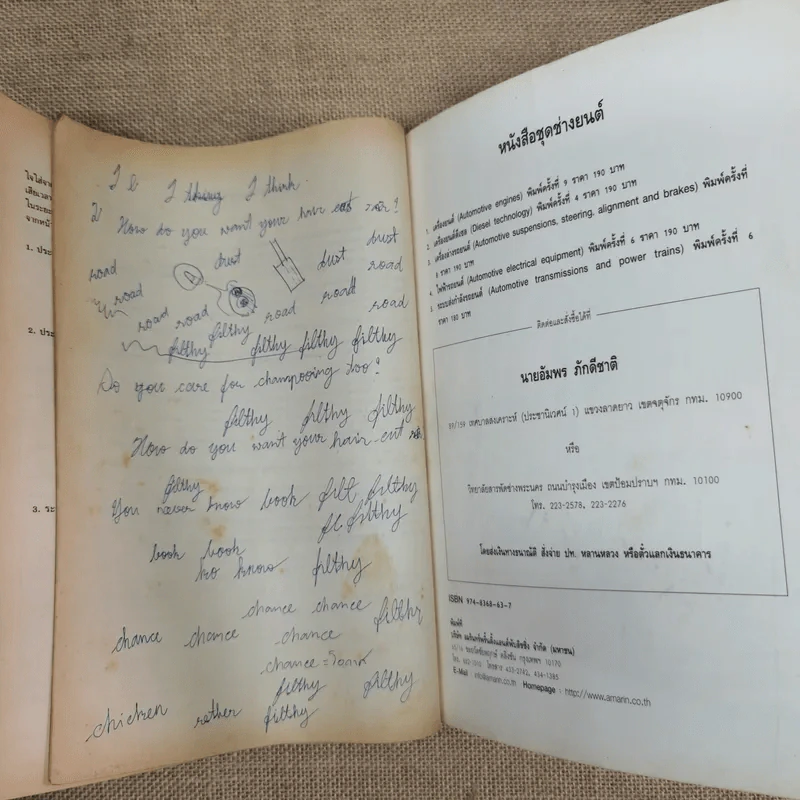 I thing I think
How do you want your hair cut sir?
road dust dust dust
road road road road road road
filthy
filthy filthy filthy filthy
Do you care for champooing too?
filthy filthy filthy
How do you want your hair-cut
filthy
You never know book filt filthy
filthy
book book
know filthy
chance chance
chance chance chance filthy
chance = โอกาส
filthy filthy
chicken rether filthy
หนังสือชุดช่างยนต์
1. เครื่องยนต์ (Automotive engines) พิมพ์ครั้งที่ 9 ราคา 190 บาท
2. เครื่องยนต์ดีเซล (Diesel technology) พิมพ์ครั้งที่ 4 ราคา 190 บาท
3. เครื่องล่างรถยนต์ (Automotive suspensions, steering, alignment and brakes) พิมพ์ครั้งที่
8 ราคา 190 บาท
4. ไฟฟ้ารถยนต์ (Automotive electrical equipment) พิมพ์ครั้งที่ 6 ราคา 190 บาท
5. ระบบส่งกำลังรถยนต์ (Automotive transmissions and power trains) พิมพ์ครั้งที่ 6
ราคา 180 บาท
ติดต่อและสั่งซื้อได้ที่
นายอัมพร ภักดีชาติ
89/159 เทศบาลสงเคราะห์ (ประชานิเวศน์ 1) แขวงลาดยาว เขตจตุจักร กทม. 10900
หรือ
วิทยาลัยสารพัดช่างพระนคร ถนนบำรุงเมือง เขตป้อมปราบฯ กทม. 10100
โทร. 223-2578, 223-2276
โดยส่งเงินทางธนาณัติ สั่งจ่าย ปท. หลานหลวง หรือตั๋วแลกเงินธนาคาร
ISBN 974-8368-63-7
พิมพ์ที่
บริษัท อมรินทร์พริ้นติ้งแอนด์พับลิชชิ่ง จำกัด (มหาชน)
E-Mail : info@amarin.co.th Homepage : http://www.amarin.co.th